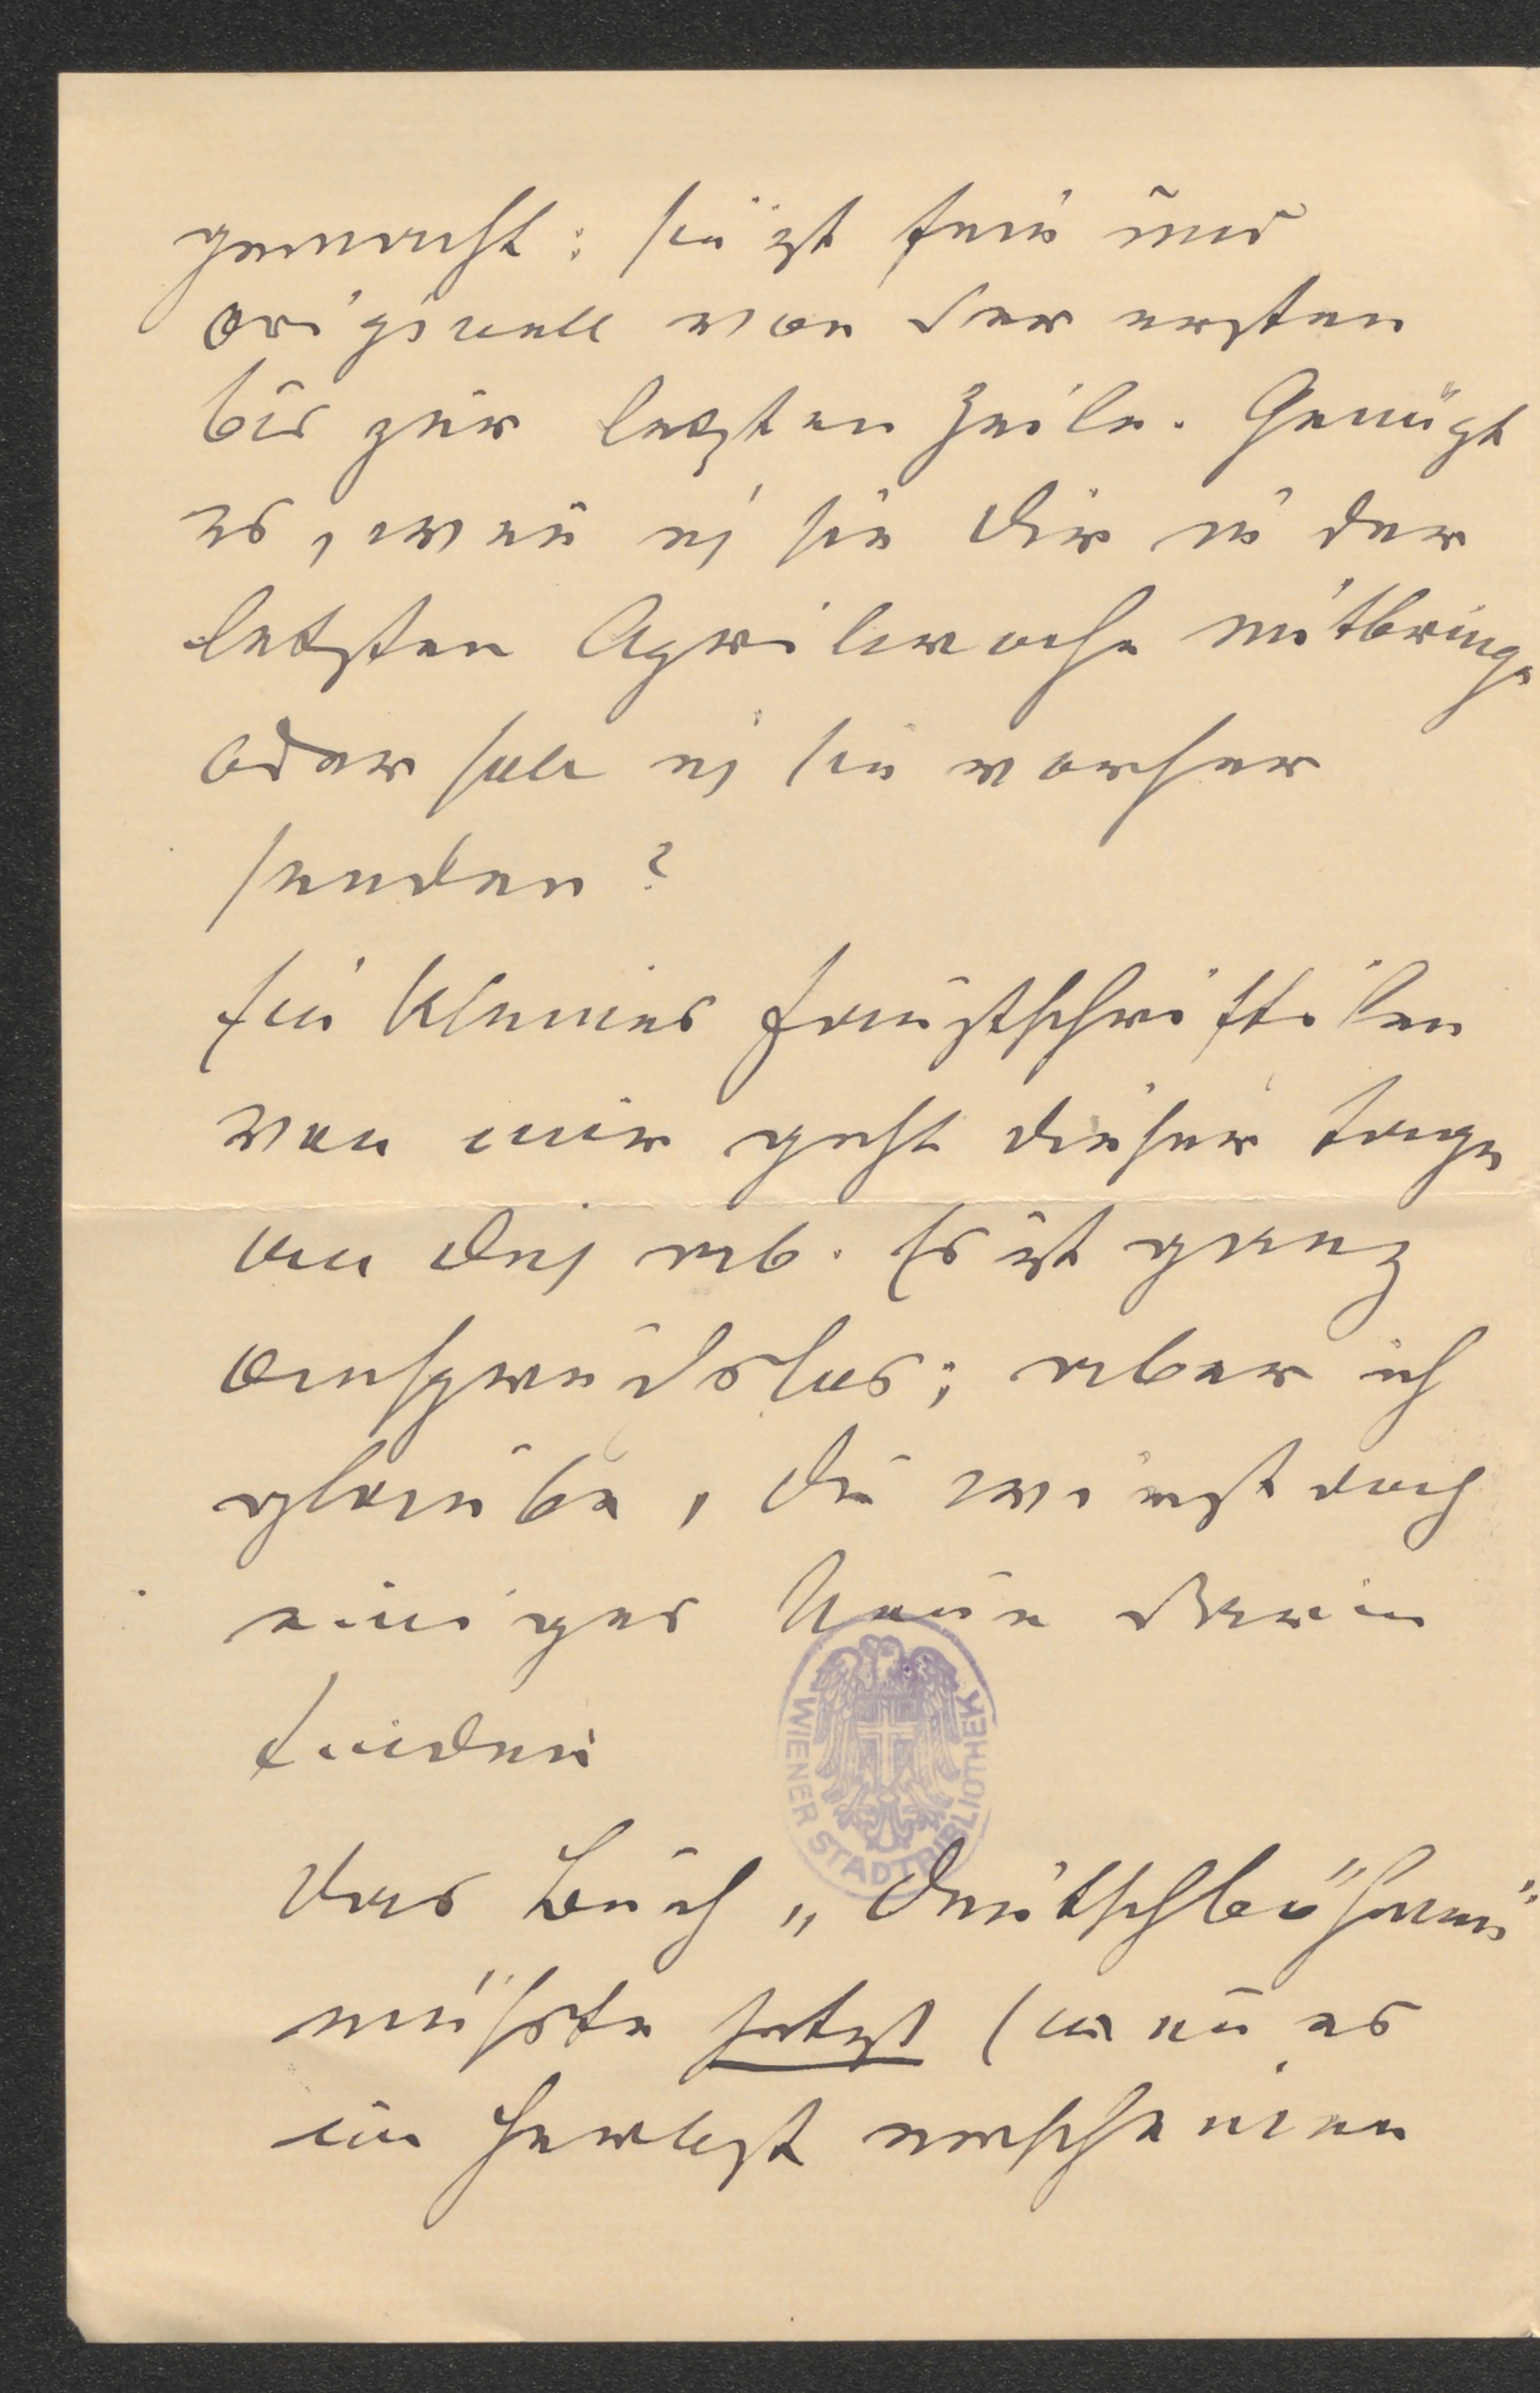 gemacht: sie ist fein und
originell von der ersten
bis zur letzten Zeile. Genügt
es, wen̄ ich sie Dir in der
letzten Aprilwoche mitbringe
oder soll ich sie vorher
senden?
Ein kleines Faustschriftchen
von mir geht dieser Tage
an Dich ab. Es ist ganz
anspruchslos; aber ich
glaube, Du wirst doch
einiges Neue darin
finden
Das Buch „Deutschböhmen"
müsste jetzt (wen̄ es
im Herbst erscheinen
WIENER STADTBIBLIOTHEK